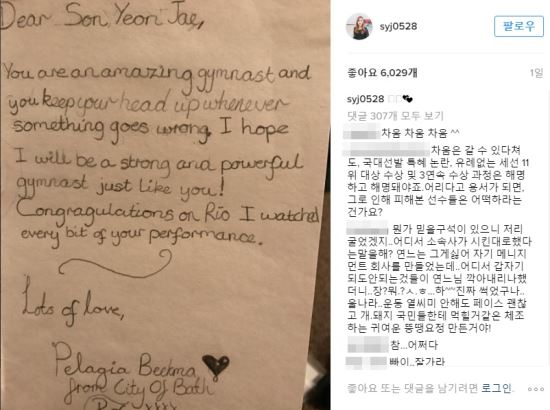 Dear Son Yeon Jae,
You are an amazing gymnast and
you keep your head up whenever
something goes wrong, I hope
I will be a strong and powerful
gymnast just like you!
Congragulations on Rio I watched
every bit of your performance.
Lots of love,
Pelagia
from City Of Bath
syj0528
팔로우
좋아요 6,029개
1일
syj0528
댓글 307개 모두 보기
차움 차움 차움 ^^
차움은 갈 수 있다쳐
도, 국대선발 특혜 논란, 유례없는 세선 11
위 대상 수상 및 3연속 수상 과정은 해명
하고 해명돼야죠.어리다고 용서가 되면,
그로 인해 피해본 선수들은 어떡하라는
건가요?
뭔가 믿을구석이 있으니 저리
굴었겠지..어디서 소속사가 시킨대로했다
는말을해? 연느는 그게싫어 자기 메니지
먼트 회사를 만들었는데..어디서 갑자기
되도안되는것들이 연느님 깍아내리나했
더니..장?뭐.?ㅅ.ㅎ...하~~진짜 썩었구나..
울나라..운동 열씨미 안해도 페이스 괜찮
고 개.돼지 국민들한테 먹힐거같은 체조
하는 귀여운 뚱땡요정 만든거야!
참...어쩌다
빠이..잘가라
좋아요 또는 댓글을 남기려면 로그인.